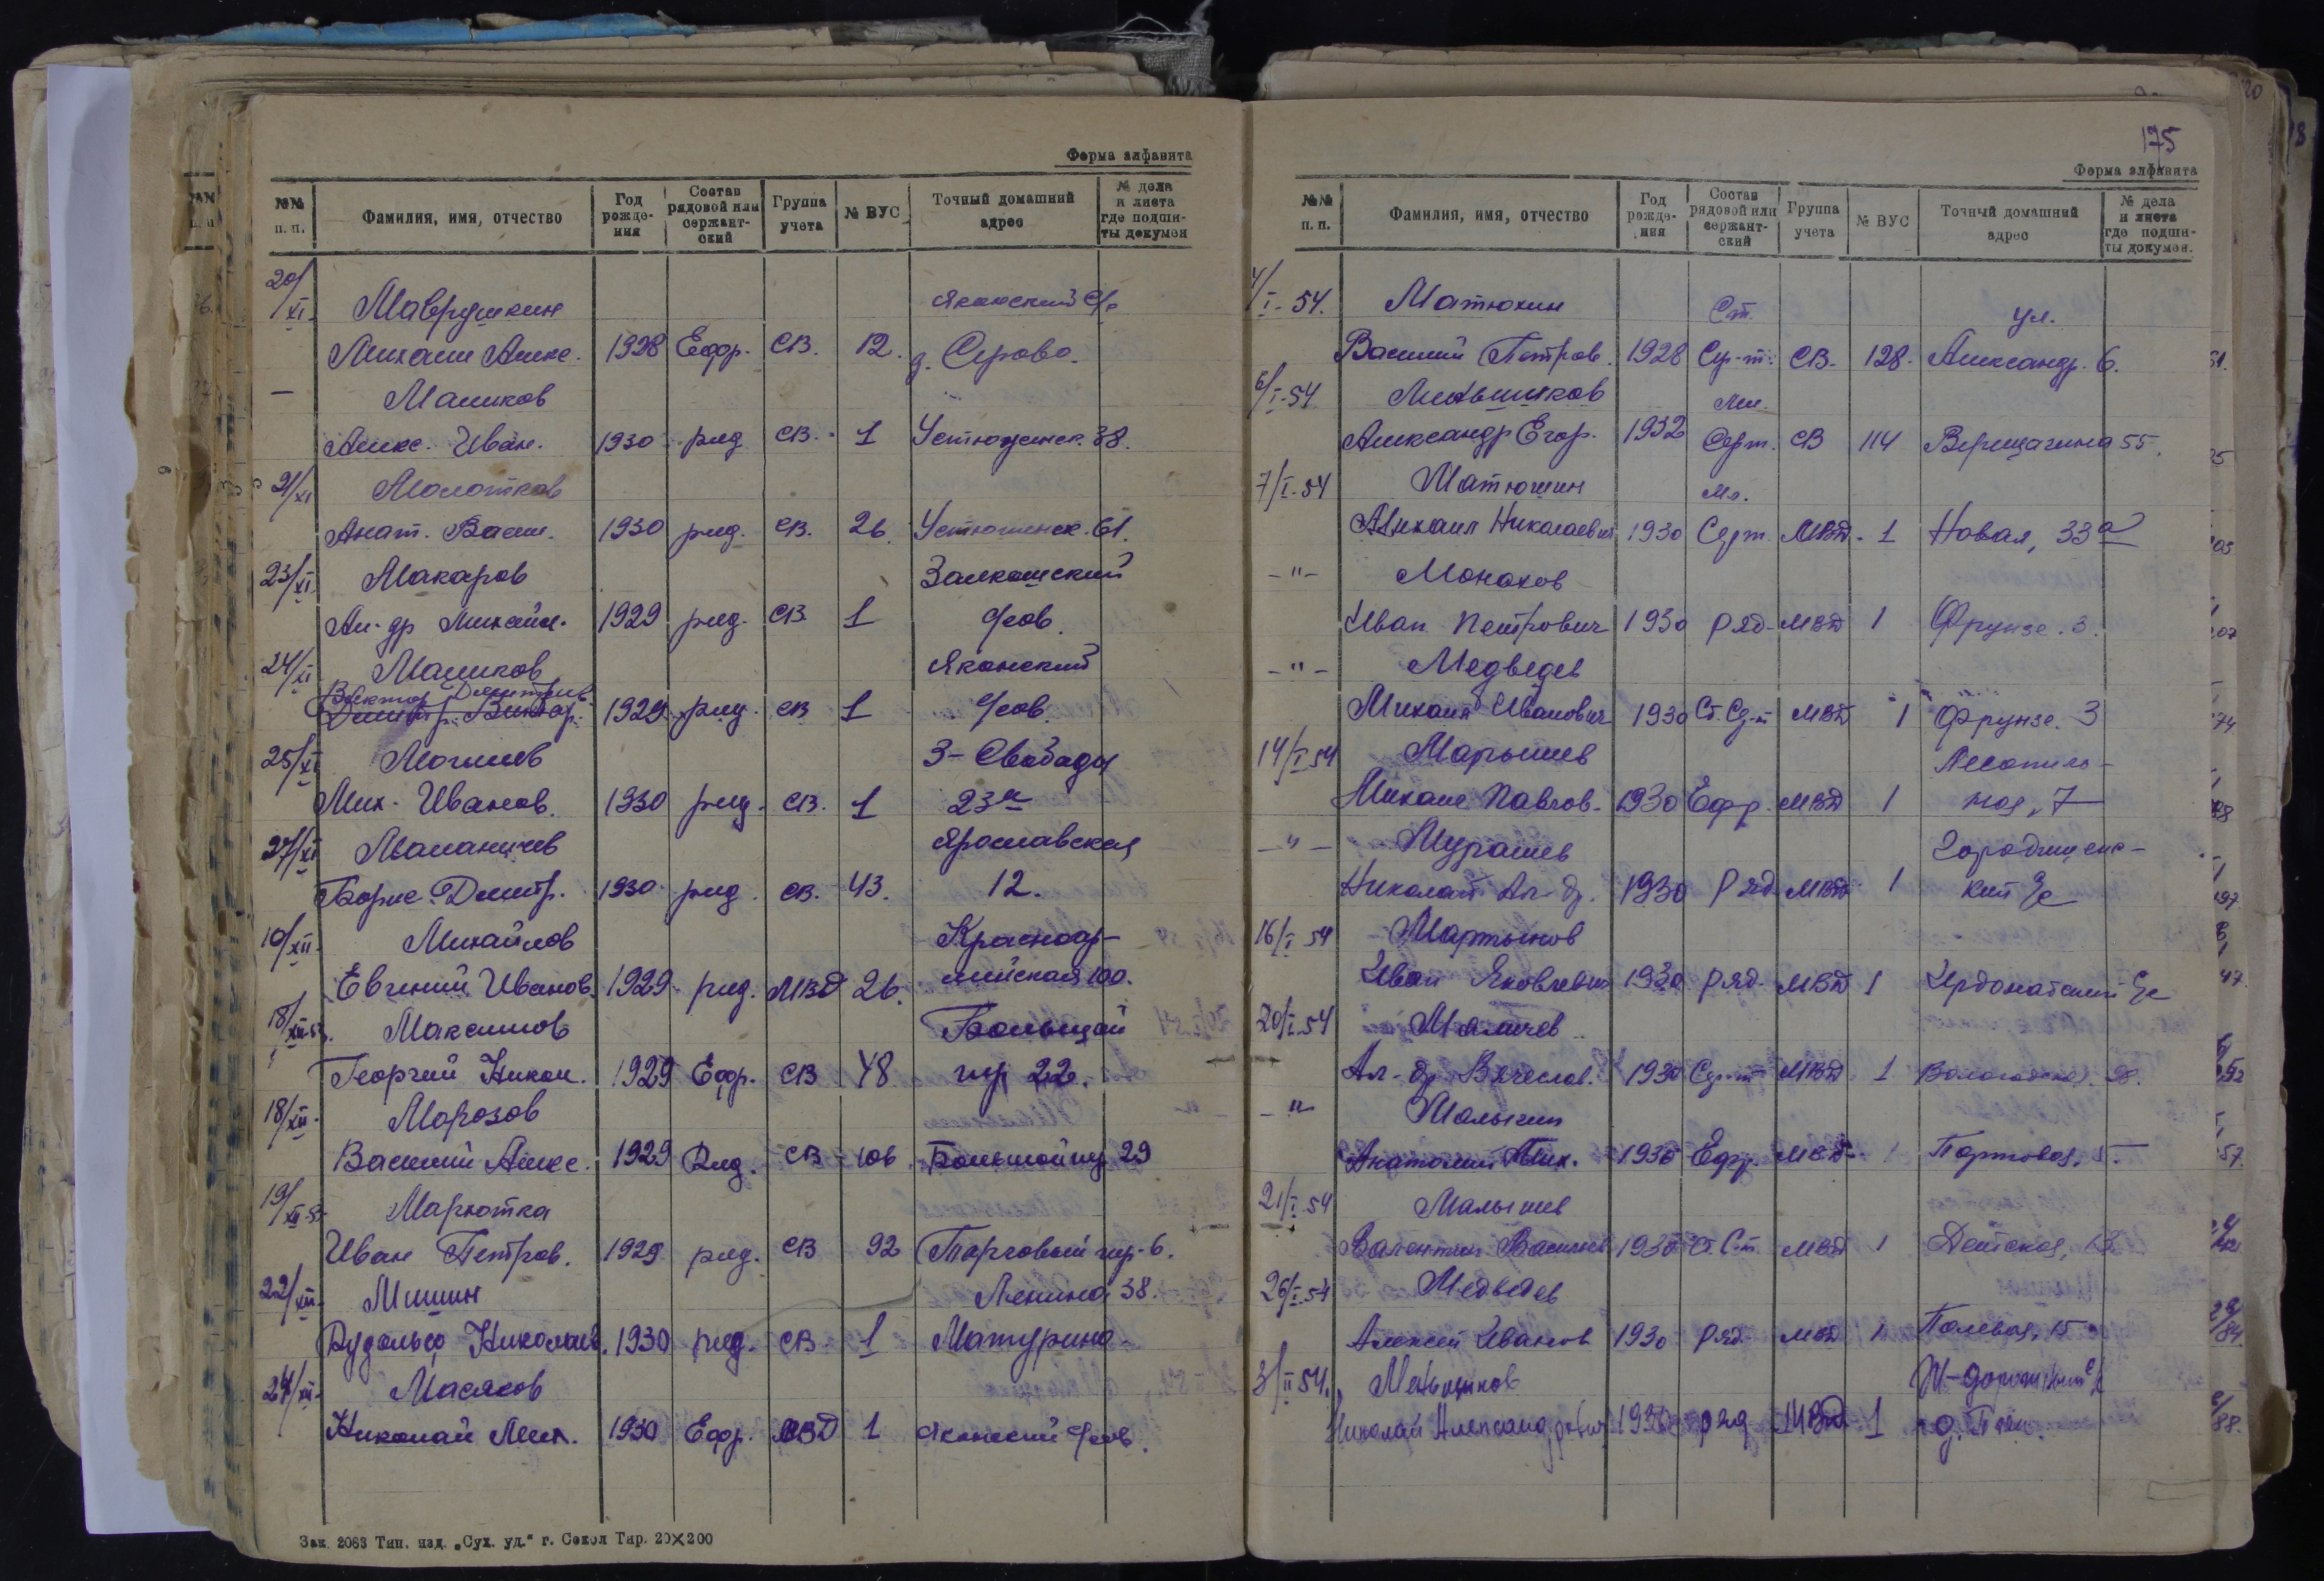 Форма алфавита
№№ п. п. Фамилия, имя, отчество Год рожде- ния Состав рядовой или сержант- ский Группа учета № ВУС Точный домашний адрес № дела и листа где подши- ты докумен
20/XI Маврушкин Яконский с/с
Михаил Алекс. 1928 Ефр. СВ. 12. д. Серово.
— Маликов
Алекс. Иван. 1930 ряд СВ. 1 Устюженск. 38.
21/XI Молотков
Анат. Васил. 1930 ряд. СВ. 26. Устюженск. 61.
23/XI Макаров
Ал-др Михайл. 1929 ряд. СВ. 1
24/XI Маликов Яконский
Виктор Дмитриев.
Дмитр. Виктор. 1929 ряд. СВ 1
25/XI 3-Свободы
Мих. Иванов. 1930 ряд. СВ. 1 23а
27/XI Маланичев Ярославская
Борис Дмитр. 1930 ряд. СВ. 43. 12.
10/XII. Михайлов Красноар-
Евгений Иванов. 1929 ряд. МВД 26. мейская 100.
18/XII-53. Максимов Большой
Георгий Никол. 1929 Ефр. СВ 48 пр 22.
18/XII. Морозов
Василий Алекс. 1929 Ряд. СВ 106 Большой пр 29
19/XII-53 Марютка
Иван Петров. 1929 ряд. СВ 92 Торговый пер. 6.
22/XII. Мишин Ленина 38.
Рудольф Николаев. 1930 ряд. СВ 1 Матурино-
24/XII. Масяков
Николай Мих. 1930 Ефр. МВД 1 Яконский
Зак. 2063 Тип. изд. „Сух. уд.“ г. Сокол Тир. 20×200
175
Форма алфавита
№№ п. п. Фамилия, имя, отчество Год рожде- ния Состав рядовой или сержант- ский Группа учета № ВУС Точный домашний адрес № дела и листа где подши- ты докумен.
4/I-54. Матюхин Ст. ул.
Василий Петров. 1928 Сер-т. СВ- 128. Александр. 6.
6/I-54 Меньшиков Мл.
Александр Егор. 1932 Серт. СВ 114 Верещагина 55.
7/I-54 Матюшин Мл.
Михаил Николаевич 1930 Серт. МВД. 1 Новая, 33а
-"- Монахов
Иван Петрович 1930 ряд- МВД 1 Фрунзе. 3.
-"- Медведев
Михаил Иванович 1930 Ст. Сер-т МВД 1 Фрунзе. 3
14/I 54 Марышев Лесопиль-
Михаил Павлов- 1930 Ефр. МВД 1 ная, 7
-"- Мурашев Городищенс-
Николай Ал-др. 1930 Ряд. МВД 1 кий с/с
16/I 54 Мартынов
Иван Яковлевич 1930 ряд. МВД 1 с/с
20/I-54 Маличев
Ал-др Вячеслав. 1930 Сер-т МВД 1
-"- Малыгин
Анатолий Мих. 1930 Ефр. МВД- 1 Портовая,
21/I 54 Малышев
Валентин 1930 Ст. С-т МВД 1
26/I-54 Медведев
Алексей Иванов 1930 ряд. МВД 1 Полевая, 15
3/II 54. Меньшиков
Николай Александрович 1930 ряд МВД 1